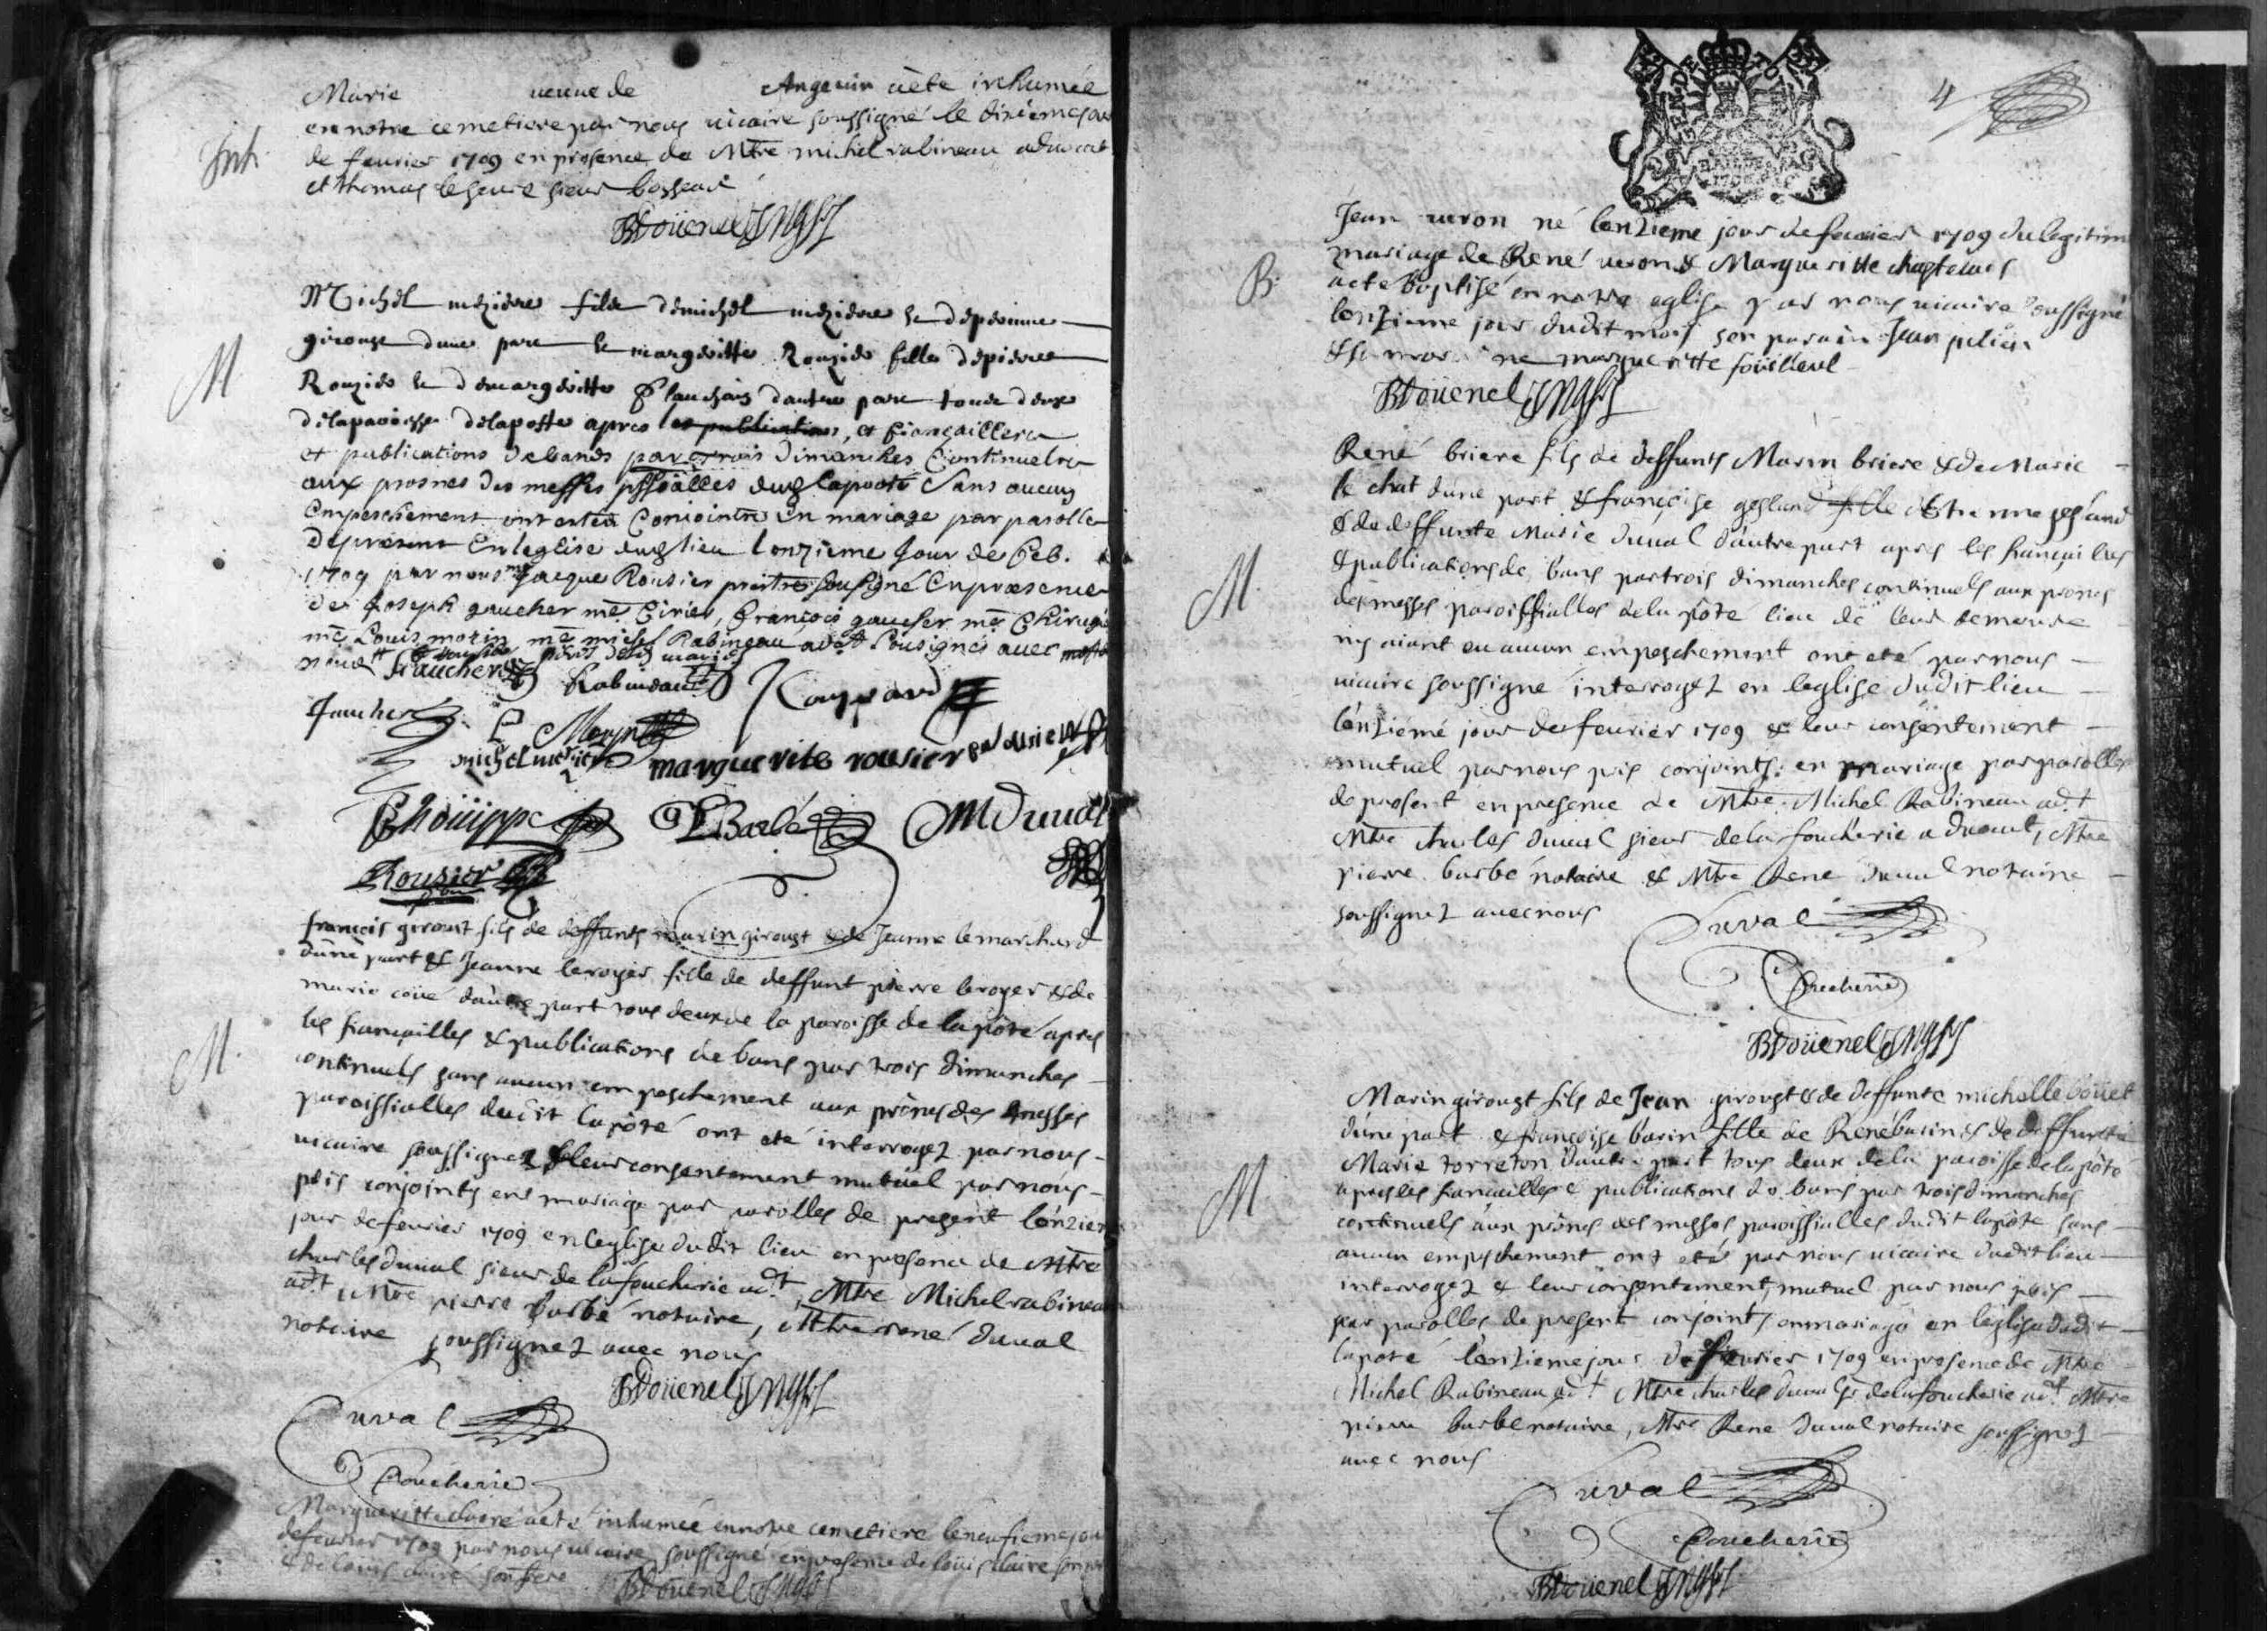 Marie veuve de Angevin aété inhumée
en notre cemetiere par nous vicaire soussigné le dixieme jour
Inh.
de fevrier 1709 en presence de Mtre michel rabineau advocat
et thomas sieur
BDoüenel
Michel meziere fils de michel meziere & de perinne
giroust dune part & margueritte Rouzier fille de pierre
M
Rouzier & de margueritte dautre part tous deux
de la paroisse de la poste apres les publications, et fiancailles
et publications de bands par trois dimanches Continuels
aux prosnes des messes pssialles dud lapooté Sans aucun
Empeschement ont estés Conjoints en mariage par parolles
de present En leglise dud lieu lonzieme Jour de Feb.
1709 par nous me Jacque Rousier prestre sousigné En presence
de Joseph gaucher me Cirier, François gaucher me Chirugi
me Louis morin me michel Rabineau advt sousignés avec
Gaucher Rabineau
Gaucher L Morin
michel meziere marguerite rousier
PBarbé MDuval
Rousier
francois giroust fils de deffunts marin giroust & de Jeanne lemarchard
dune part & Jeanne leroyer fille de deffunt pierre leroyer & de
marie coüé dautre part tous deux de la paroisse de lapôté apres
les fiancailles & publications de bans par trois dimanches
M.
continuels sans aucun empeschement aux prônes des messes
paroissialles dudit lapôté ont eté interrogez par nous
vicaire soussignez & leur consentement mutuel par nous
pris conjoints en mariage par parolles de present lonzieme
jour de fevrier 1709 en leglise dudit lieu en presence de Mtre
charles duval sieur de la foucherie adt, Mtre Michel rabineau
adt, Mtre pierre barbé notaire, Mtre rené duval
notaire soussignez avec nous
BDoüenel
Duval
Foucherie
Margueritte claire aeté inhumée en notre cemetiere le neufieme jour
de fevrier 1709 par nous vicaire soussigné en presence de loüis claire son
& de louis claire son frere
BDoüenel
4
GEN DE TOURS
Jean veron né lonzieme jour de fevrier 1709 du legitime
mariage de René veron & Margueritte
B.
aeté baptisé en notre eglise par nous vicaire soussigné
lonzieme jour dudit mois son parain Jean julien
& sa maraine margueritte
BDoüenel
René briere fils de deffunts Marin briere & de Marie
le chat dune part & françoise gesland fille destienne gesland
& de deffunte Marie duval dautre part apres les fiancailles
M.
& publications de bans par trois dimanches continuels aux prônes
des messes paroissialles de la pôté lieu de leur demeure
ny aiant eu aucun empeschement ont eté par nous
vicaire soussigné interrogez en leglise dudit lieu
lonziéme jour de fevrier 1709 & leur consentement
mutuel par nous pris conjoints en mariage par parolles
de present en presence de Mtre Michel Rabineau adt
Mtre charles duval sieur de la foucherie advocat, Mtre
pierre barbé notaire & Mtre René duval notaire
soussignez avec nous
Duval
Foucherie
BDoüenel
Marin giroust fils de Jean giroust & de deffunte michelle boüet
dune part & françoise barin fille de René barin & de deffunte
Marie torreton dautre part tous deux de la paroisse de lapôté
M
apres les fiancailles & publications de bans par trois dimanches
continuels aux prônes des messes paroissialles dudit lapôté sans
aucun empeschement ont eté par nous vicaire dudit lieu
interrogez & leur consentement mutuel par nous pris
par parolles de present conjoints en mariage en leglise dudit
lapoté lonzieme jour de fevrier 1709 en presence de Mtre
Michel Rabineau adt Mtre charles duval sr de la foucherie adt Mtre
pierre barbé notaire, Mtre René duval notaire soussignez
avec nous
Duval
Foucherie
BDoüenel